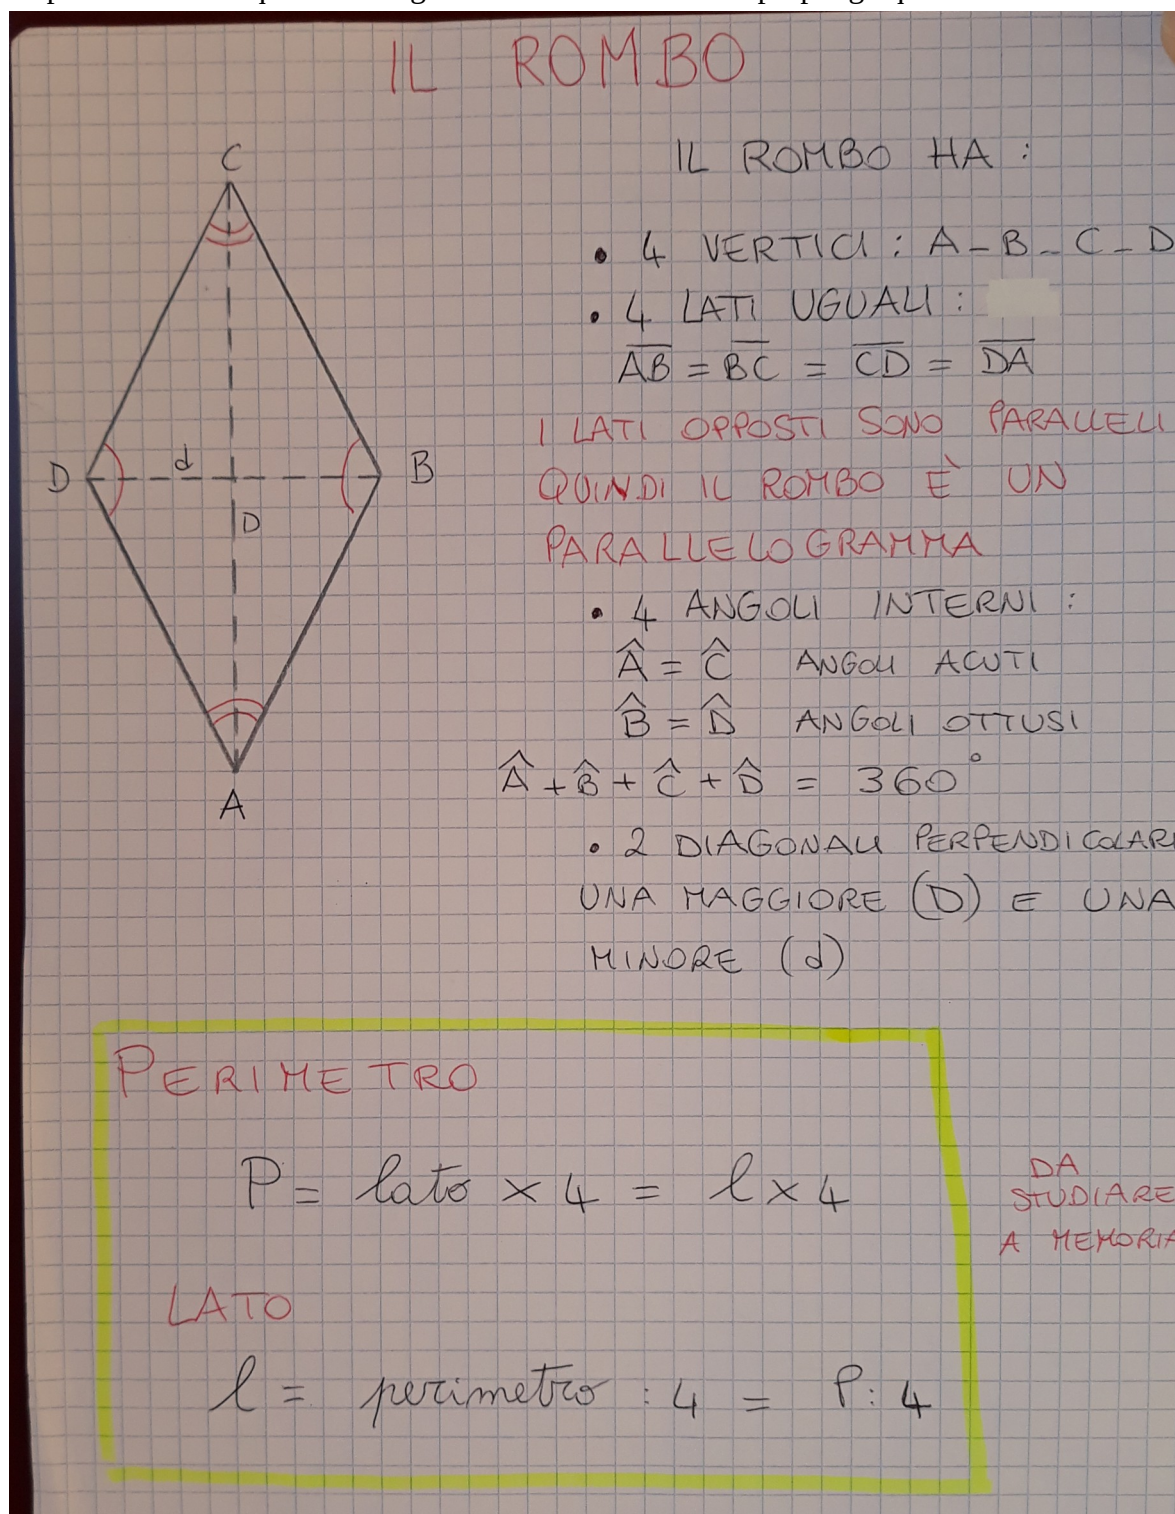 IL ROMBO
C
D
d
B
D
A
IL ROMBO HA :
• 4 VERTICI : A - B - C - D
• 4 LATI UGUALI :
A̅B̅ = B̅C̅ = C̅D̅ = D̅A̅
I LATI OPPOSTI SONO PARALLELI
QUINDI IL ROMBO È UN
PARALLELOGRAMMA
• 4 ANGOLI INTERNI :
Â = Ĉ ANGOLI ACUTI
B̂ = D̂ ANGOLI OTTUSI
Â + B̂ + Ĉ + D̂ = 360°
• 2 DIAGONALI PERPENDICOLARI
UNA MAGGIORE (D) E UNA
MINORE (d)
PERIMETRO
P = lato × 4 = l × 4
LATO
l = perimetro : 4 = P : 4
DA
STUDIARE
A MEMORIA